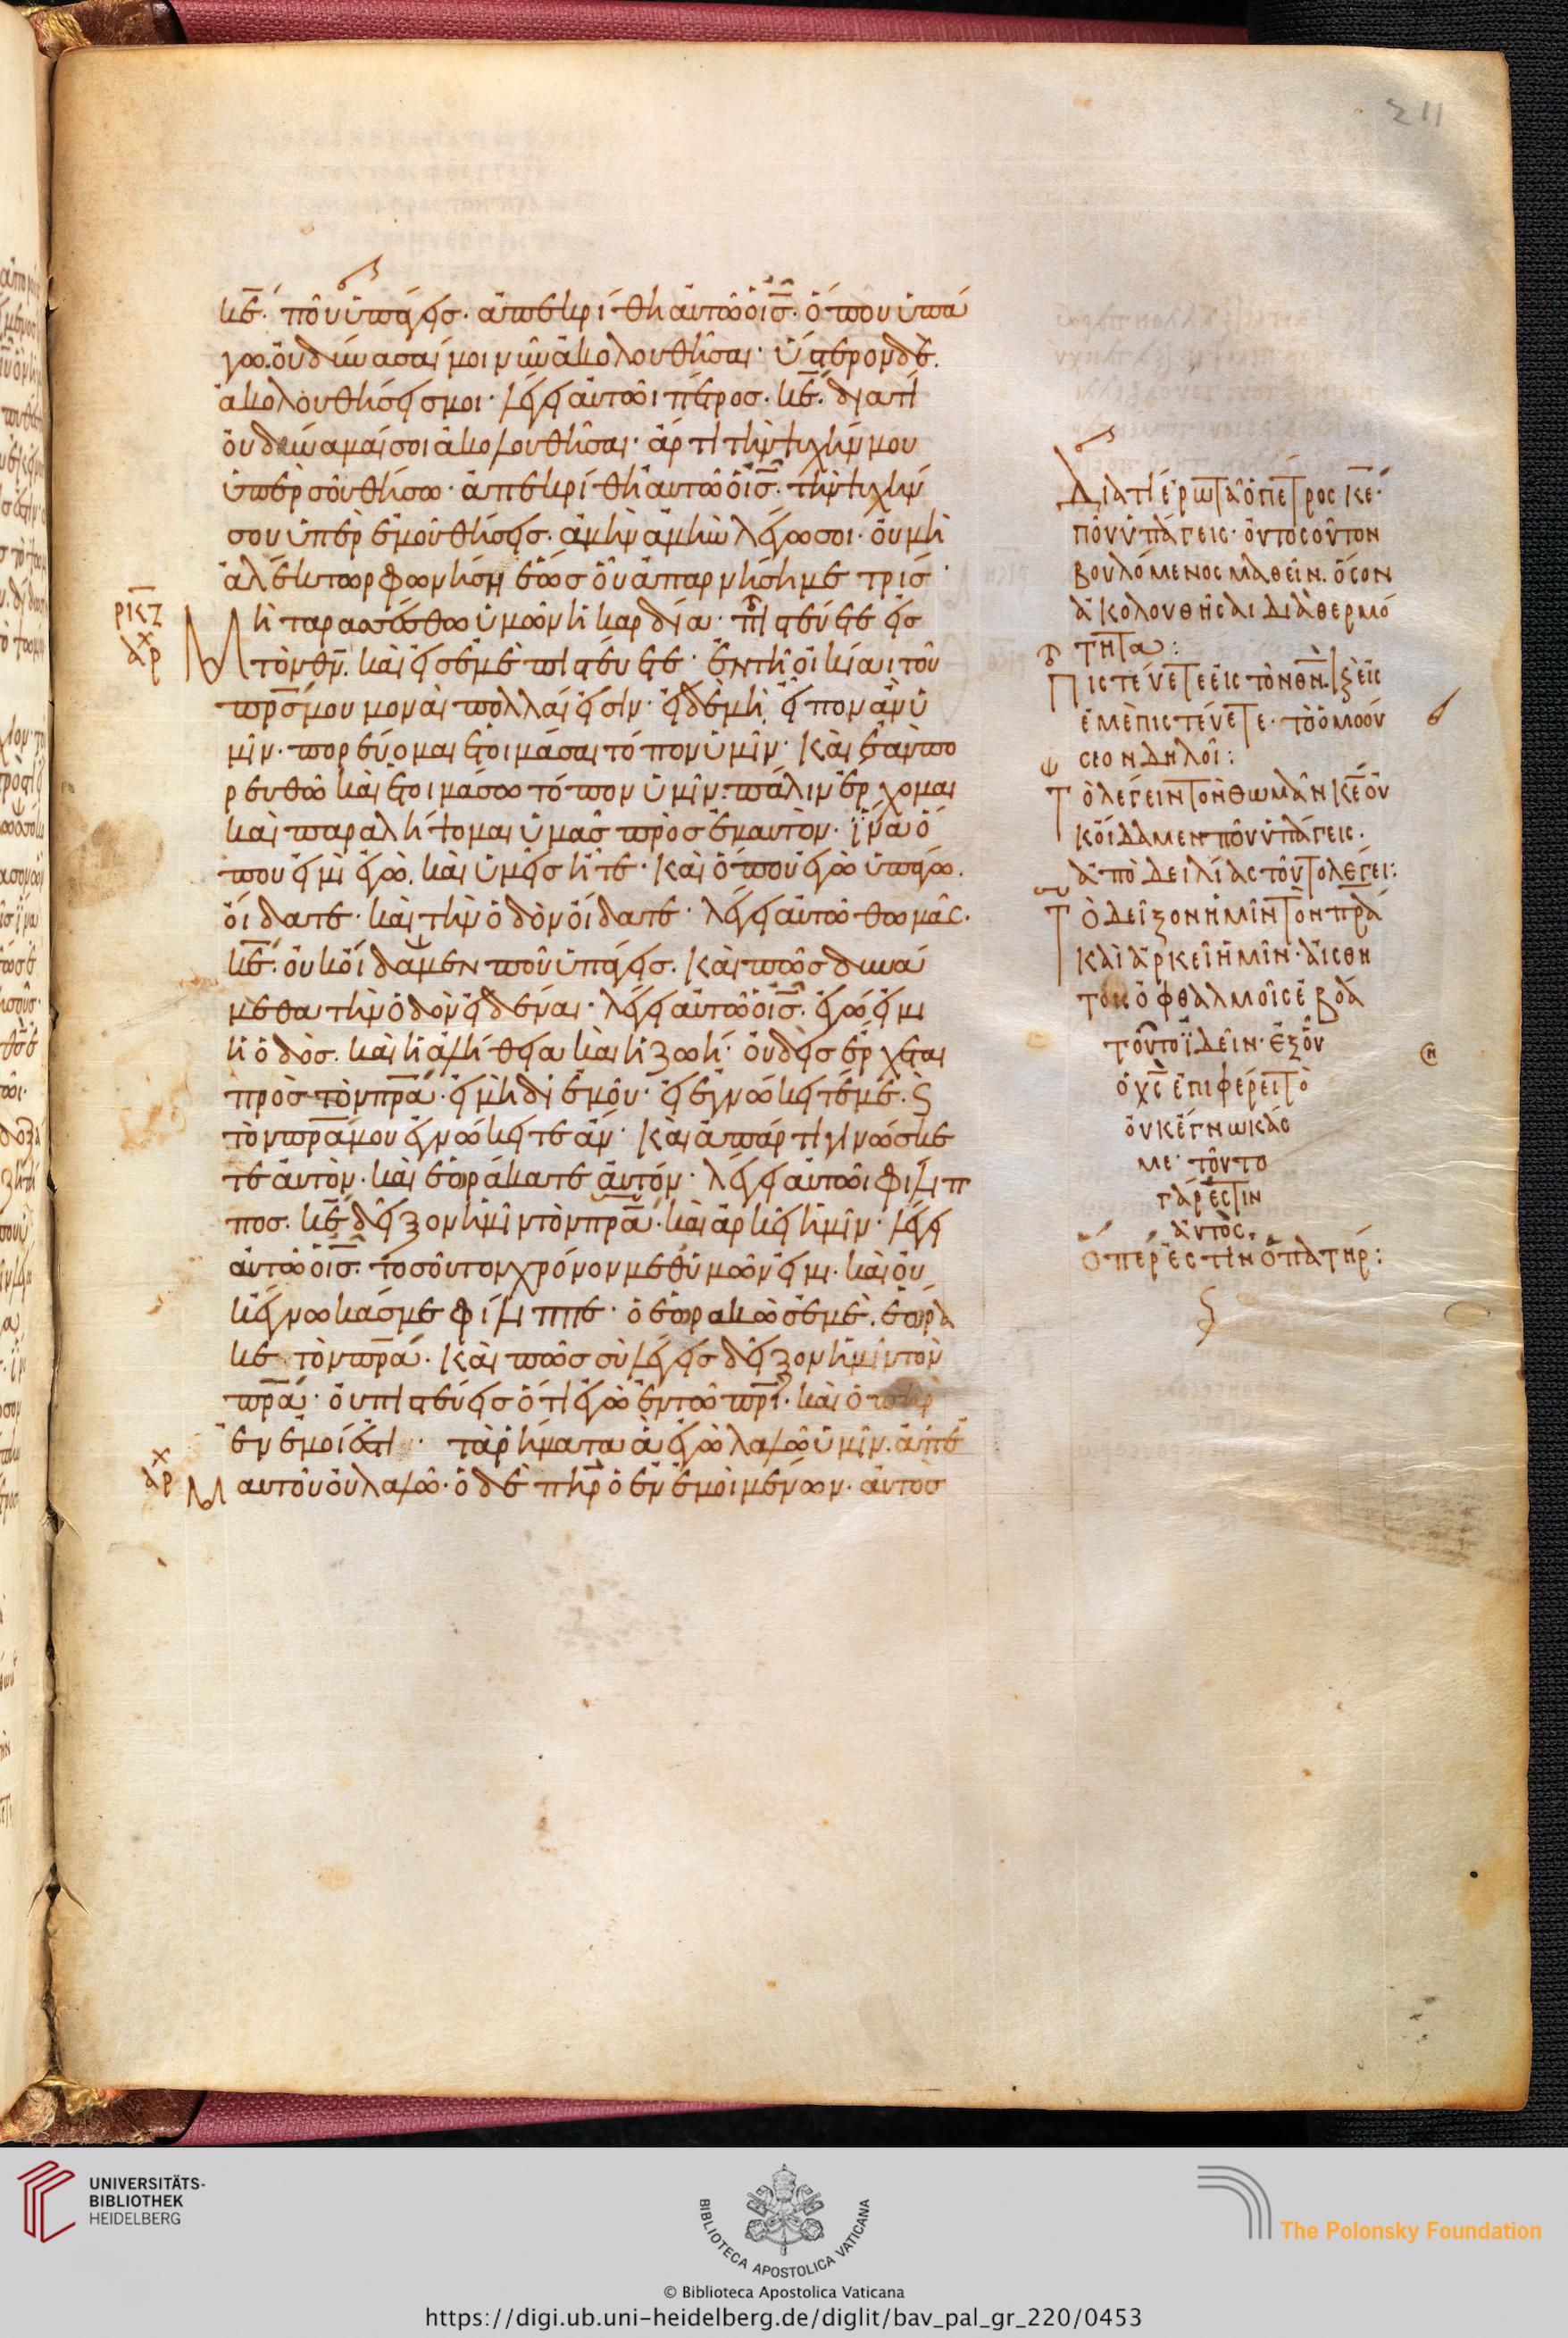 211
κε̄· ποῦ ὑπάγεις· ἀπεκρίθη αὐτῶ ὁ ις̄· ὅπου ὑπά
γω. οὐ δύνασαί μοι νῦν ἀκολουθῆσαι· ὕστερον δὲ.
ἀκολουθήσεις μοι· λέγει αὐτῶ ὁ πέτρος. κε̄· διατί
οὐ δύναμαί σοι ἀκολουθῆσαι· ἄρτι τὴν ψυχήν μου
ὑπὲρ σοῦ θήσω· ἀπεκρίθη αὐτῶ ὁ ις̄· τὴν ψυχήν
σου ὑπὲρ ἐμοῦ θήσεις. ἀμὴν ἀμὴν λέγω σοι· οὐ μὴ
ἀλέκτωρ φωνήση ἕως οὗ ἀπαρνήση με τρίς·
ρκζ̄
Μὴ ταρασσέσθω ὑμῶν ἡ καρδία· πιστεύετε εἰς
τὸν θν̄. καὶ εἰς ἐμὲ πιστεύετε· ἐν τῆ οἰκία τοῦ
πρς̄ μου μοναὶ πολλαί εἰσιν· εἰ δὲ μὴ, εἶπον ἂν ὑ
μῖν· πορεύομαι ἑτοιμάσαι τόπον ὑμῖν· Καὶ ἐὰν πο
ρευθῶ καὶ ἑτοιμάσω τόπον ὑμῖν· πάλιν ἔρχομαι
καὶ παραλήψομαι ὑμᾶς πρὸς ἐμαυτόν· ἵνα ὅ
που εἰμὶ ἐγὼ, καὶ ὑμεῖς ἦτε· Καὶ ὅπου ἐγὼ ὑπάγω.
οἴδατε· καὶ τὴν ὁδὸν οἴδατε· λέγει αὐτῶ θωμᾶς.
κε̄· οὐκ οἴδαμεν ποῦ ὑπάγεις. Καὶ πῶς δυνά
μεθα τὴν ὁδὸν εἰδέναι· λέγει αὐτῶ ὁ ις̄· ἐγώ εἰμι
ἡ ὁδὸς. καὶ ἡ ἀλήθεια καὶ ἡ ζωή· οὐδεὶς ἔρχεται
πρὸς τὸν πρ̄α· εἰ μὴ δι ἐμοῦ· εἰ ἐγνώκειτέ με. Ϛ
τὸν πρ̄α μου ἐγνώκειτε ἄν· Καὶ ἀπάρτι γινώσκε
τε αὐτὸν. καὶ ἑωράκατε αὐτόν· λέγει αὐτῶ φίλιπ
πος. κε̄ δεῖξον ἡμῖν τὸν πρ̄α· καὶ ἀρκεῖ ἡμῖν· λέγει
αὐτῶ ὁ ις̄· τοσοῦτον χρόνον μεθ ὑμῶν εἰμι. καὶ οὐ
κ ἔγνωκάς με φίλιππε· ὁ ἑωρακὼς ἐμὲ. ἑώρα
κε τὸν πρ̄α· Καὶ πῶς σὺ λέγεις δεῖξον ἡμῖν τὸν
πρ̄α· οὐ πιστεύεις ὅτι ἐγὼ ἐν τῶ πρῑ· καὶ ὁ πηρ̄
ἐν ἐμοί ἐστι· τὰ ῥήματα ἃ ἐγὼ λαλῶ ὑμῖν. ἀπ ἐ
μαυτοῦ οὐ λαλῶ· ὁ δὲ πηρ̄ ὁ ἐν ἐμοὶ μένων. αὐτὸς
Διατί ἐρωτᾶ ὁ πέτρος κε̄·
ποῦ ὑπάγεις· ὄντος οὗτον
βουλόμενος μαθεῖν. ὅσον
ἀκολουθῆσαι διὰ θερμό
τητα:
Πιστεύετε εἰς τὸν θν̄. κ εἰς
ἐμὲ πιστεύετε· τὸ ὁμοού
σιον δηλοῖ:
Τὸ λέγειν τὸν θωμᾶν κε̄ οὐ
κ οἴδαμεν ποῦ ὑπάγεις.
ἀπὸ δειλίας τοῦτο λέγει:
Τὸ δεῖξον ἡμῖν τὸν πρ̄α
καὶ ἀρκεῖ ἡμῖν· αἰσθη
τοῖς ὀφθαλμοῖς ἐβοᾶ
τοῦτο ἰδεῖν· ἐξ οὗ
ὁ χς̄ ἐπιφέρει τὸ
οὐκ ἔγνωκάς
με· τοῦτο
γάρ ἐστιν
αὐτὸς.
ὅπερ ἐστὶν ὁ πατήρ:
UNIVERSITÄTS-
BIBLIOTHEK
HEIDELBERG
BIBLIOTECA APOSTOLICA VATICANA
The Polonsky Foundation
© Biblioteca Apostolica Vaticana
https://digi.ub.uni-heidelberg.de/diglit/bav_pal_gr_220/0453